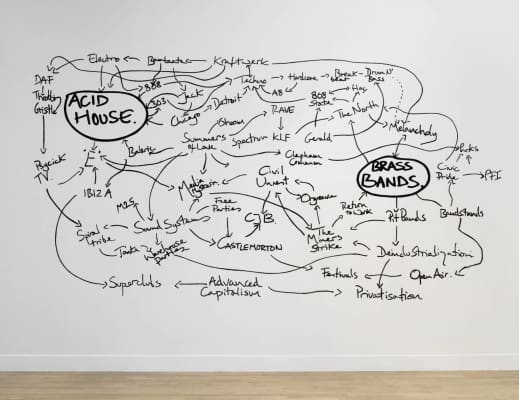 Electro
Kraftwerk
DAF
Throbbing
Gristle
808
303
Jack
Techno
Hardcore
Break-
beat
Drum N
Bass
808
State
ACID
HOUSE.
Chicago
Detroit
Shoom
RAVE
The North
Melancholy
Summer
of Love
Spectrum
KLF
Gerald
Clapham
Common
"E"
IBIZA
Media
Civil
Unrest
BRASS
BANDS.
Civic
Pride
PFI
M25
Sound Systems
Free
Parties
C.J.B.
Orgreave
Return
to Work
Pit Bands
Bandstands
Spiral
tribe
Tonka
Warehouse
parties
CASTLEMORTON
The
Miners
Strike
Deindustrialization
Festivals
Open Air.
Superclubs
Advanced
Capitalism
Privatisation